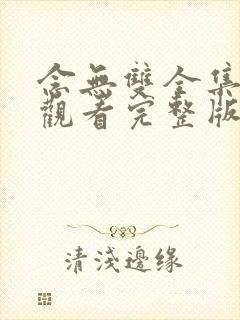 念無雙全集
觀看完整版
清淺邊缘